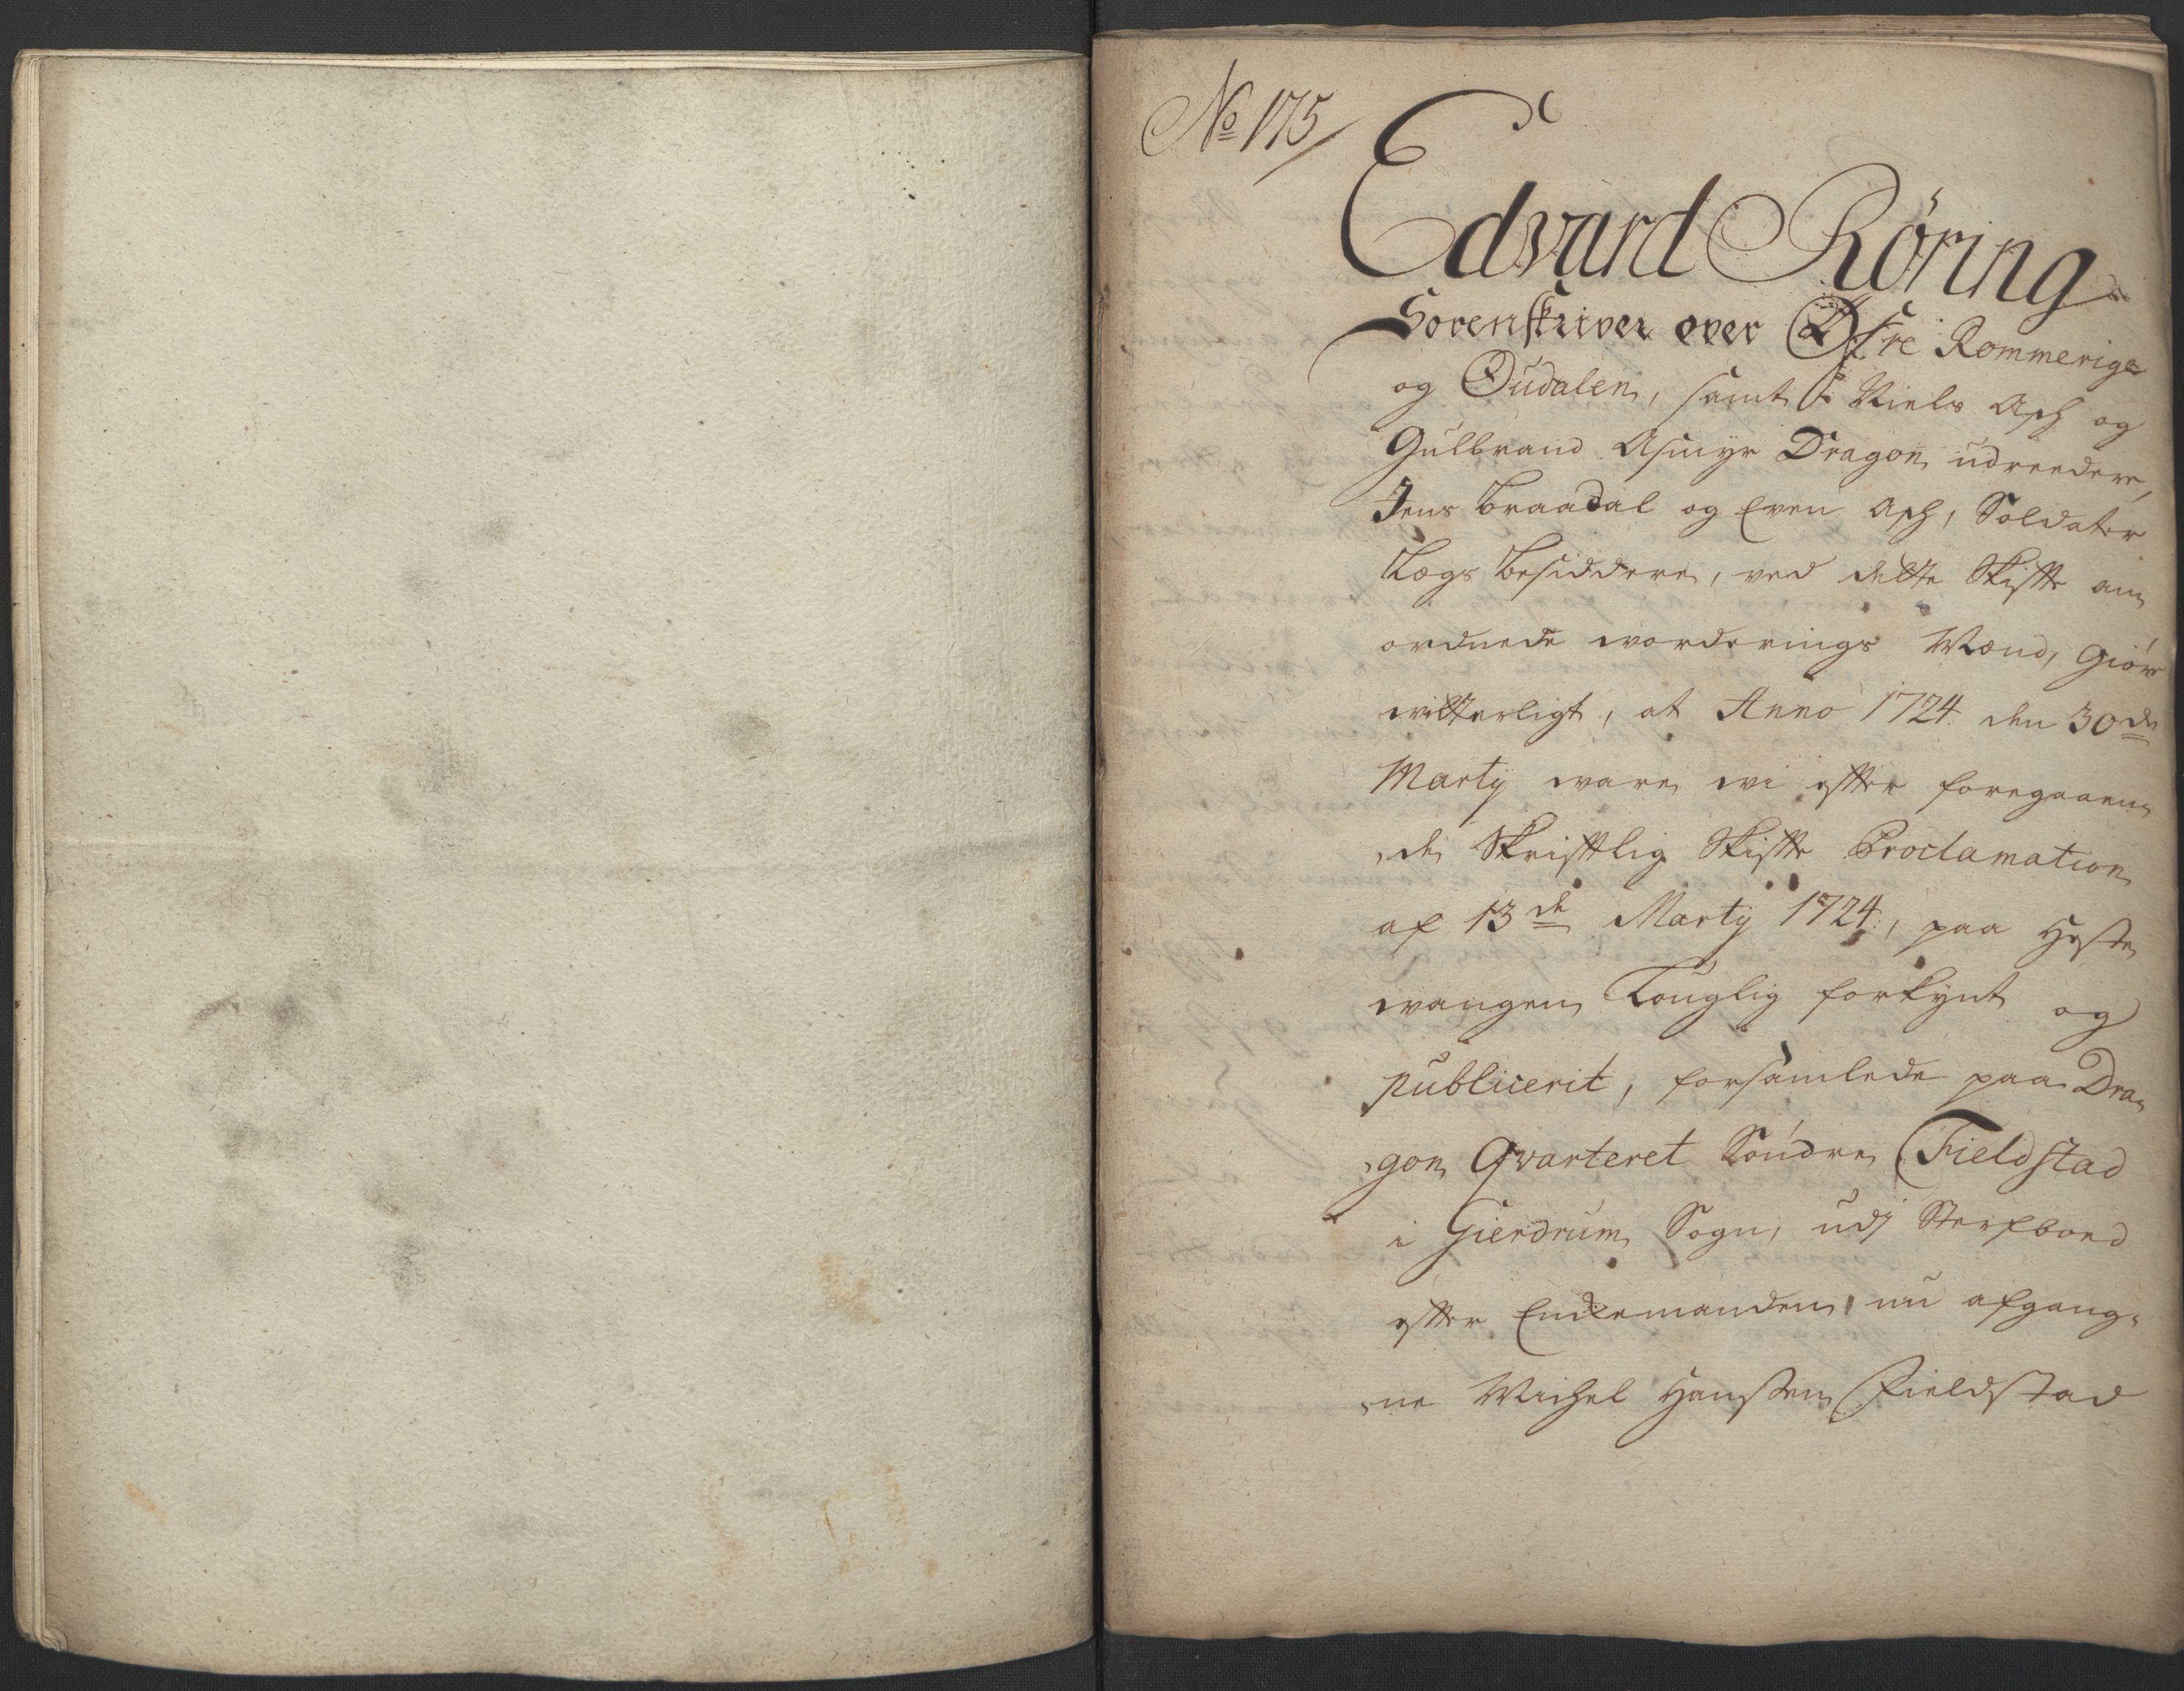 No 175
Edvard Röring
Sorenskriver over Øfre Rommerige
og Oudalen, samt Niels Ash og
Gulbrand Asmyr Dragon udreedere,
Jens Braadal og Even Ash, Soldater
Legs Besiddere, ved dette Skiftte an
ordnede worderings Mænd, Giör
witterligt, at Anno 1724 den 30de
Martij ware wi efter foregaaen
de Skrifttlig Skiftte Proclamation
af 13de Martij 1724, paa
wangen forkynt og
publicerit, forsamlede paa Dra
gon Qvarteret Söndre Fieldstad
i Gierdrum Sogn, udj Sterfboed
efter Enckemanden nu afgang
ne Michel Hanssen Fieldstad